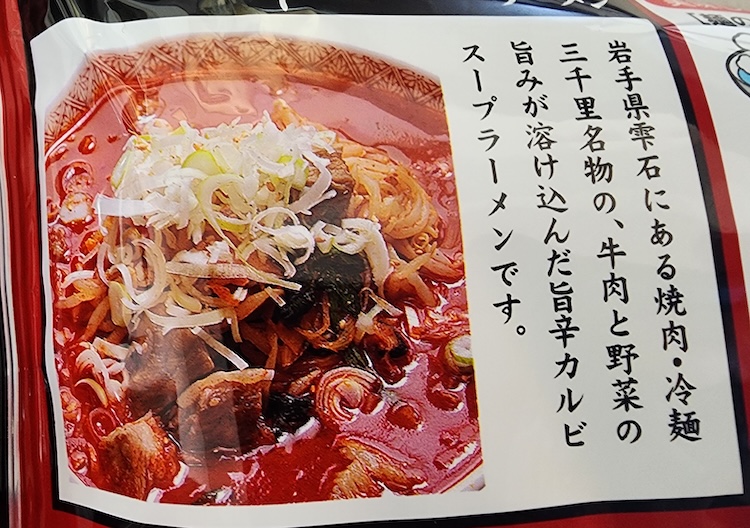 岩手県雫石にある焼肉・冷麺
三千里名物の、牛肉と野菜の
旨みが溶け込んだ旨辛カルビ
スープラーメンです。